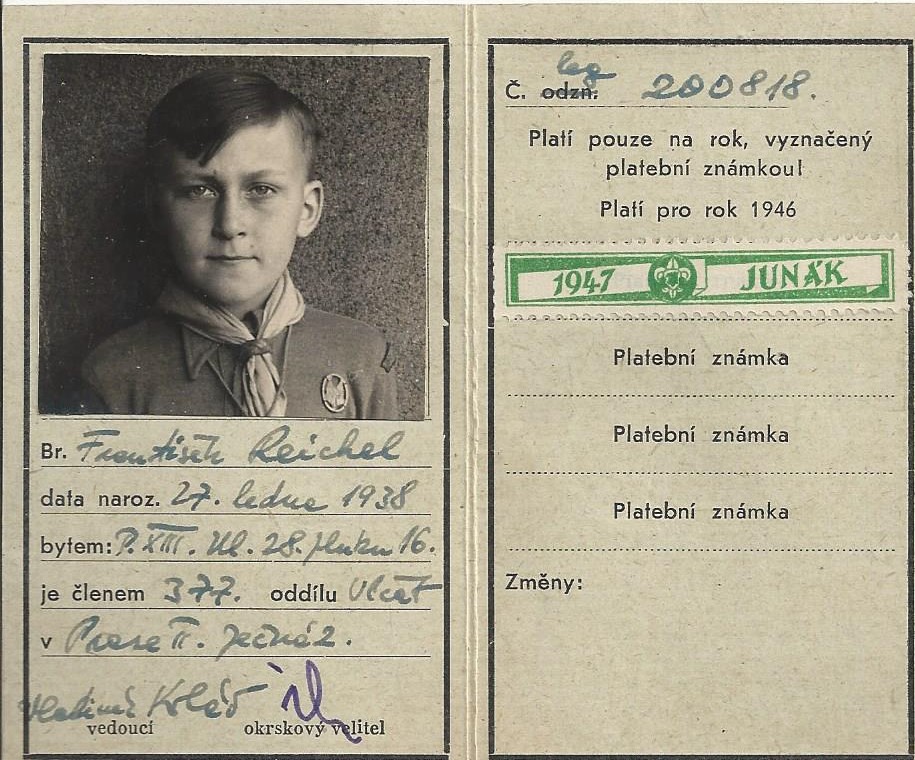 Br. František Reichel
data naroz. 27. ledna 1938
bytem: P. XIII. Ul. 28. pluku 16.
je členem 377. oddílu Vlčat
v Praze II. Ječná 2.
Vladimír
vedoucí okrskový velitel
Č. odzn. leg 200818.
Platí pouze na rok, vyznačený
platební známkou!
Platí pro rok 1946
1947 JUNÁK
Platební známka
Platební známka
Platební známka
Změny: